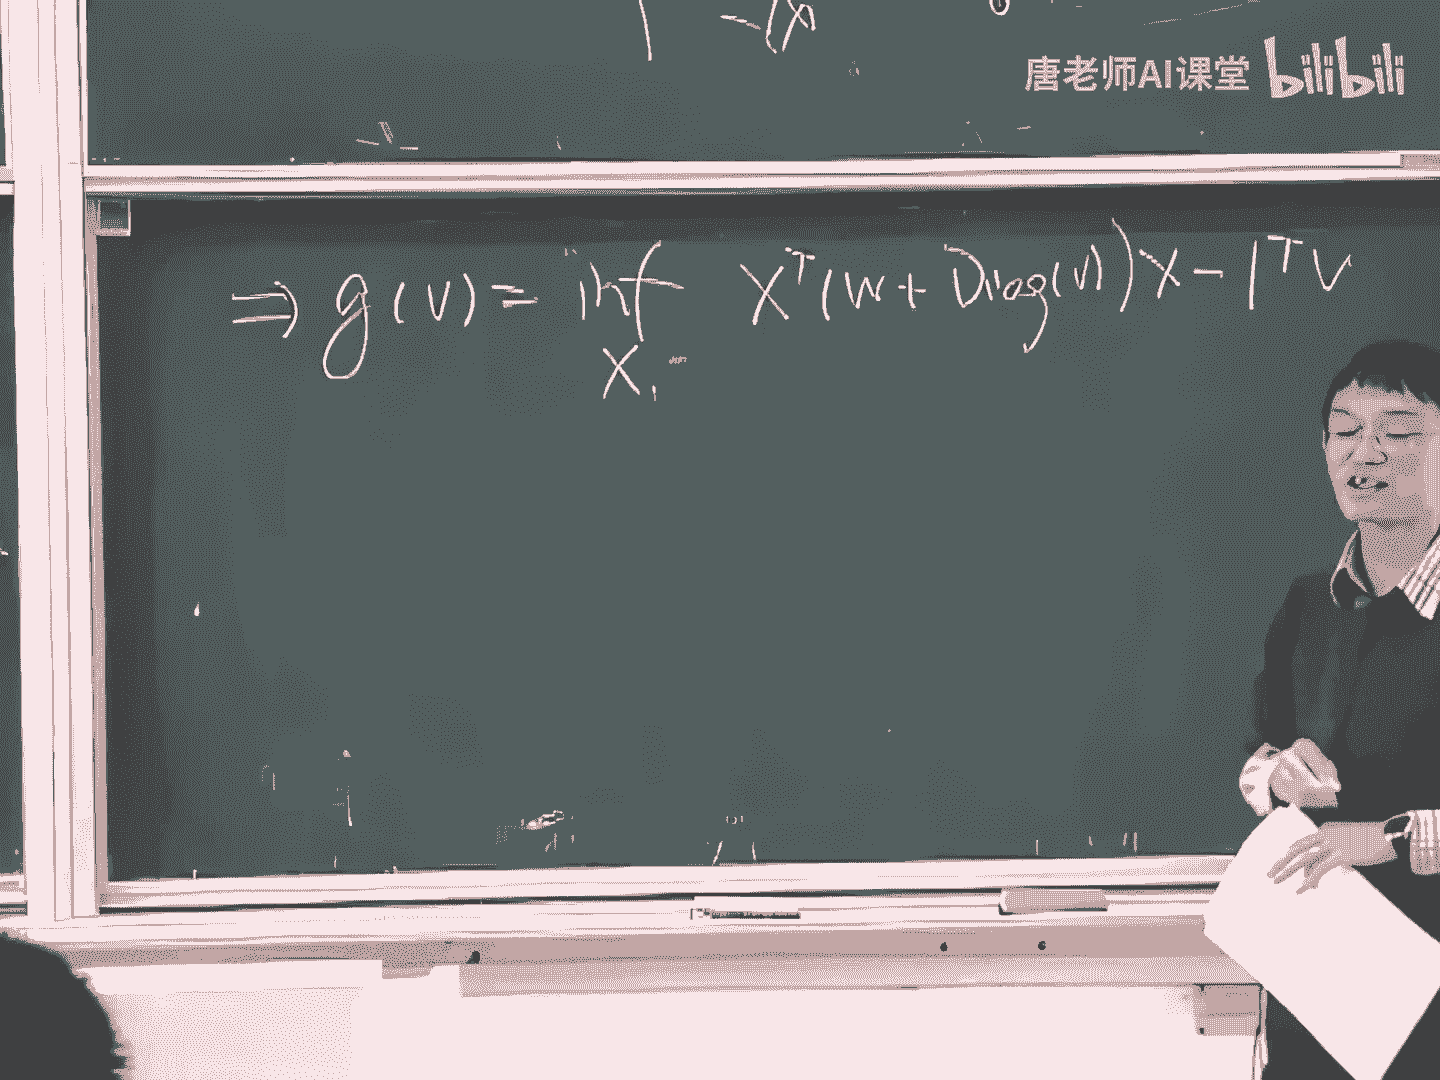 唐老师AI课堂 bilibili
⇒ g(v) = inf x^T(W + Diag(v))x - 1^T v
x